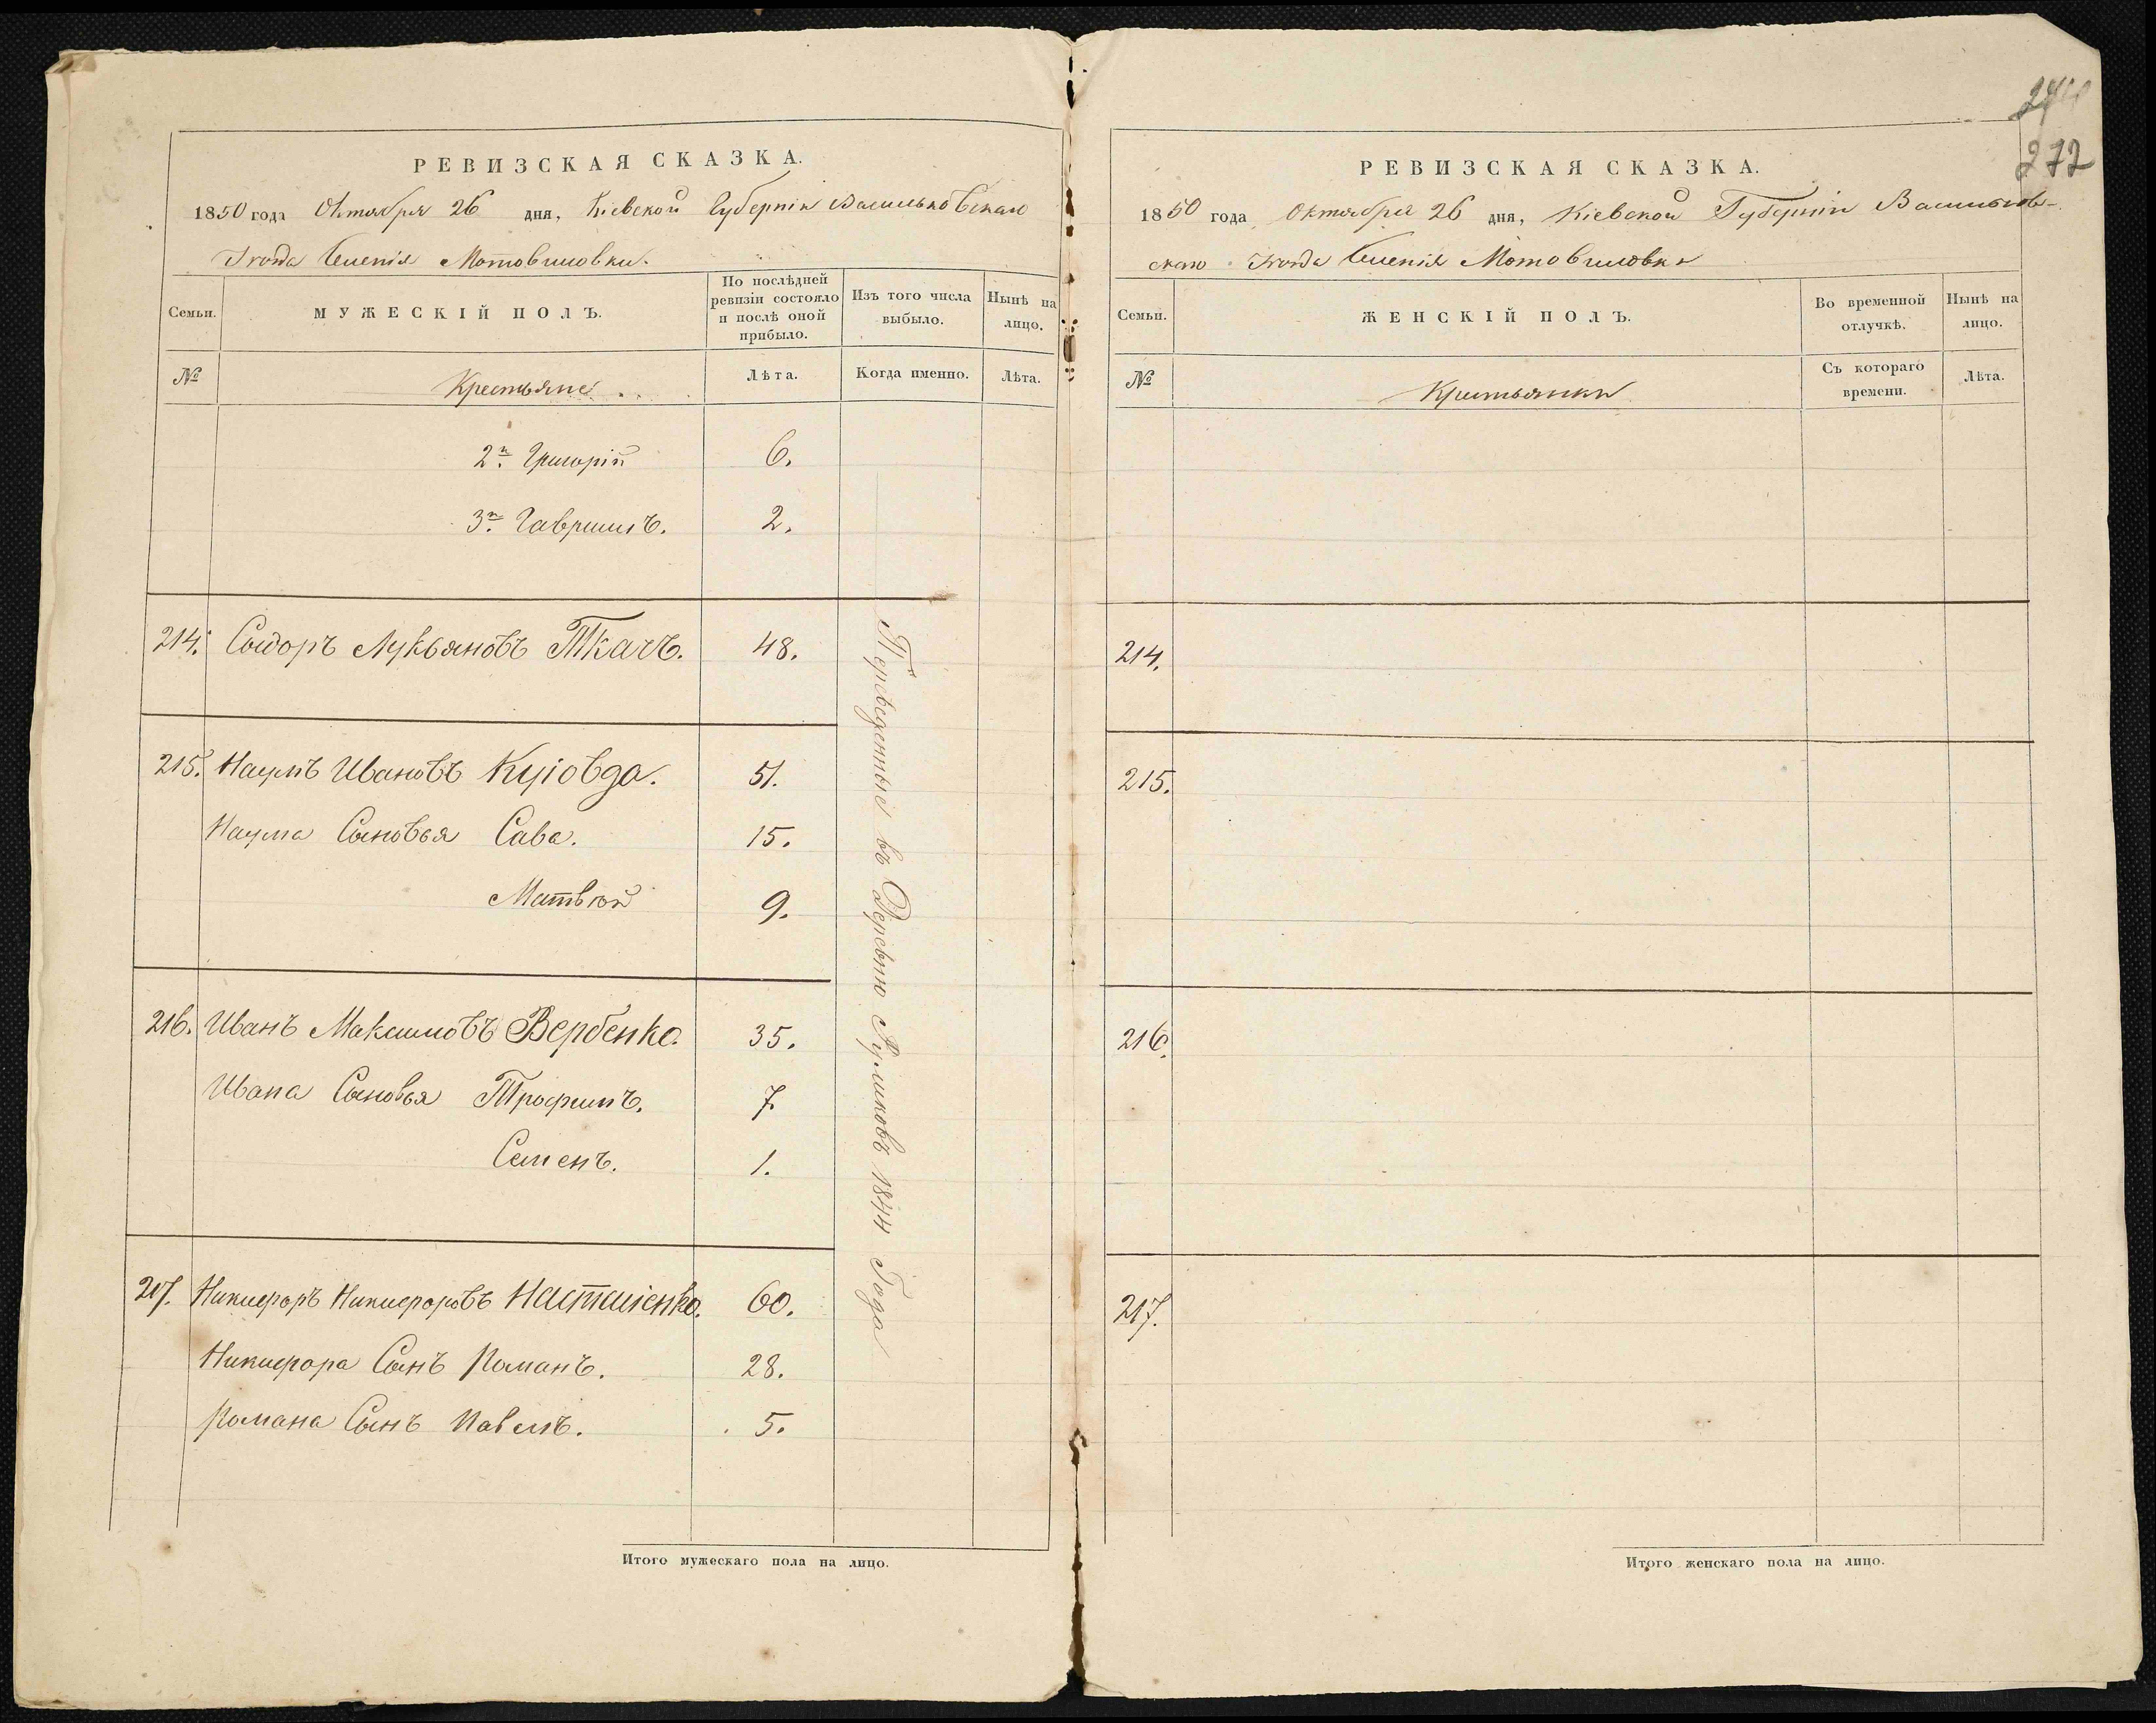 РЕВИЗСКАЯ СКАЗКА.
1850 года Октября 26 дня, Кіевской Губерніи Васильковскаго
Уезда Селенія Мотовиловки.
Семьи.
МУЖЕСКІЙ ПОЛЪ.
По послѣдней
ревизіи состояло
и послѣ оной
прибыло.
Изъ того числа
выбыло.
Нынѣ на
лицо.
№
Крестьяне.
Лѣта.
Когда именно.
Лѣта.
2й Григорій 6.
3й Гаврилъ. 2.
214. Сидоръ Лукьяновъ Ткачъ. 48.
215. Наумъ Ивановъ Куіовда. 51.
Наума Сыновья Сава. 15.
Матвѣй 9.
216. Иванъ Максимовъ Вербенко. 35.
Ивана Сыновья Трофимъ. 7.
Семенъ. 1.
217. Никифоръ Никифоровъ 60.
Никифора Сынъ Романъ. 28.
Романа Сынъ Павелъ. 5.
Переведенные въ Деревню 1844 Года
Итого мужескаго пола на лицо.
272
РЕВИЗСКАЯ СКАЗКА.
1850 года Октября 26 дня, Кіевской Губерніи Васильков-
скаго Уезда Селенія Мотовиловки
Семьи.
ЖЕНСКІЙ ПОЛЪ.
Во временной
отлучкѣ.
Нынѣ на
лицо.
№
Крестьянки
Съ котораго
времени.
Лѣта.
214.
215.
216.
217.
Итого женскаго пола на лицо.